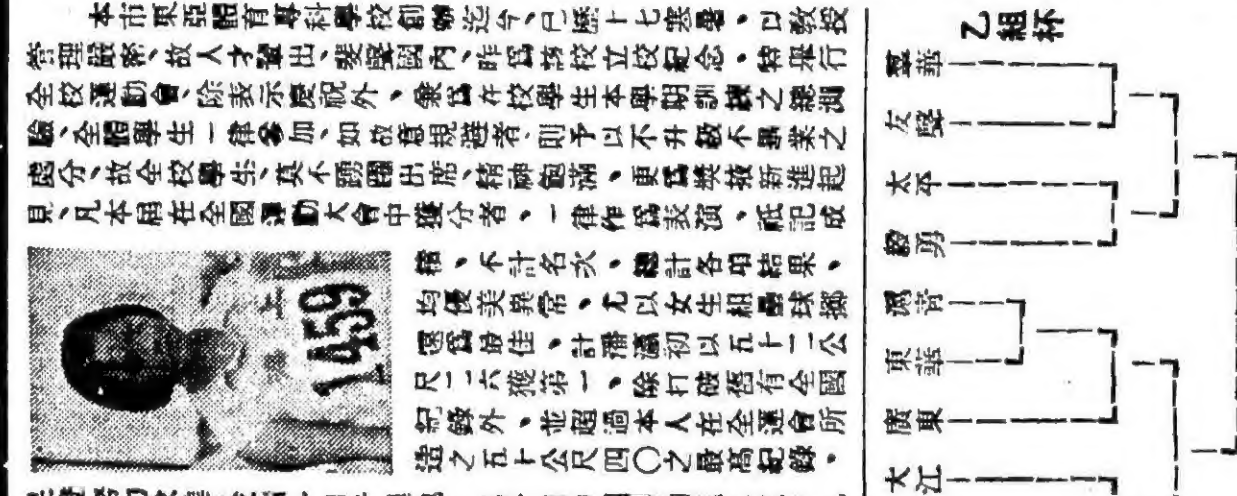 本市東亞體育專科學校創辦迄今、已歷十七寒暑、以教授
管理嚴緊、故人才輩出、國內、昨爲該校立校紀念、特舉行
全校運動會、除表示慶祝外、兼爲在校學生本學期訓練之總測
驗、全體學生一律參加、如故意規避者、則予以不升級不畢業之
處分、故全校學生、莫不踴躍出席、精神飽滿、更爲獎掖新進起
見、凡本屆在全國運動大會中獲分者、一律作爲表演、祗記成
績、不計名次、總計各項結果、
均優美異常、尤以女生組壘球擲
遠爲最佳、計潘瀛初以五十二公
尺二六獲第一、除打破舊有全國
紀錄外、並超過本人在全運會所
造之五十公尺四〇之最高紀錄、
1459
乙組杯
羣華
友聲
太平
毅勇
滬青
東華
廣東
大江